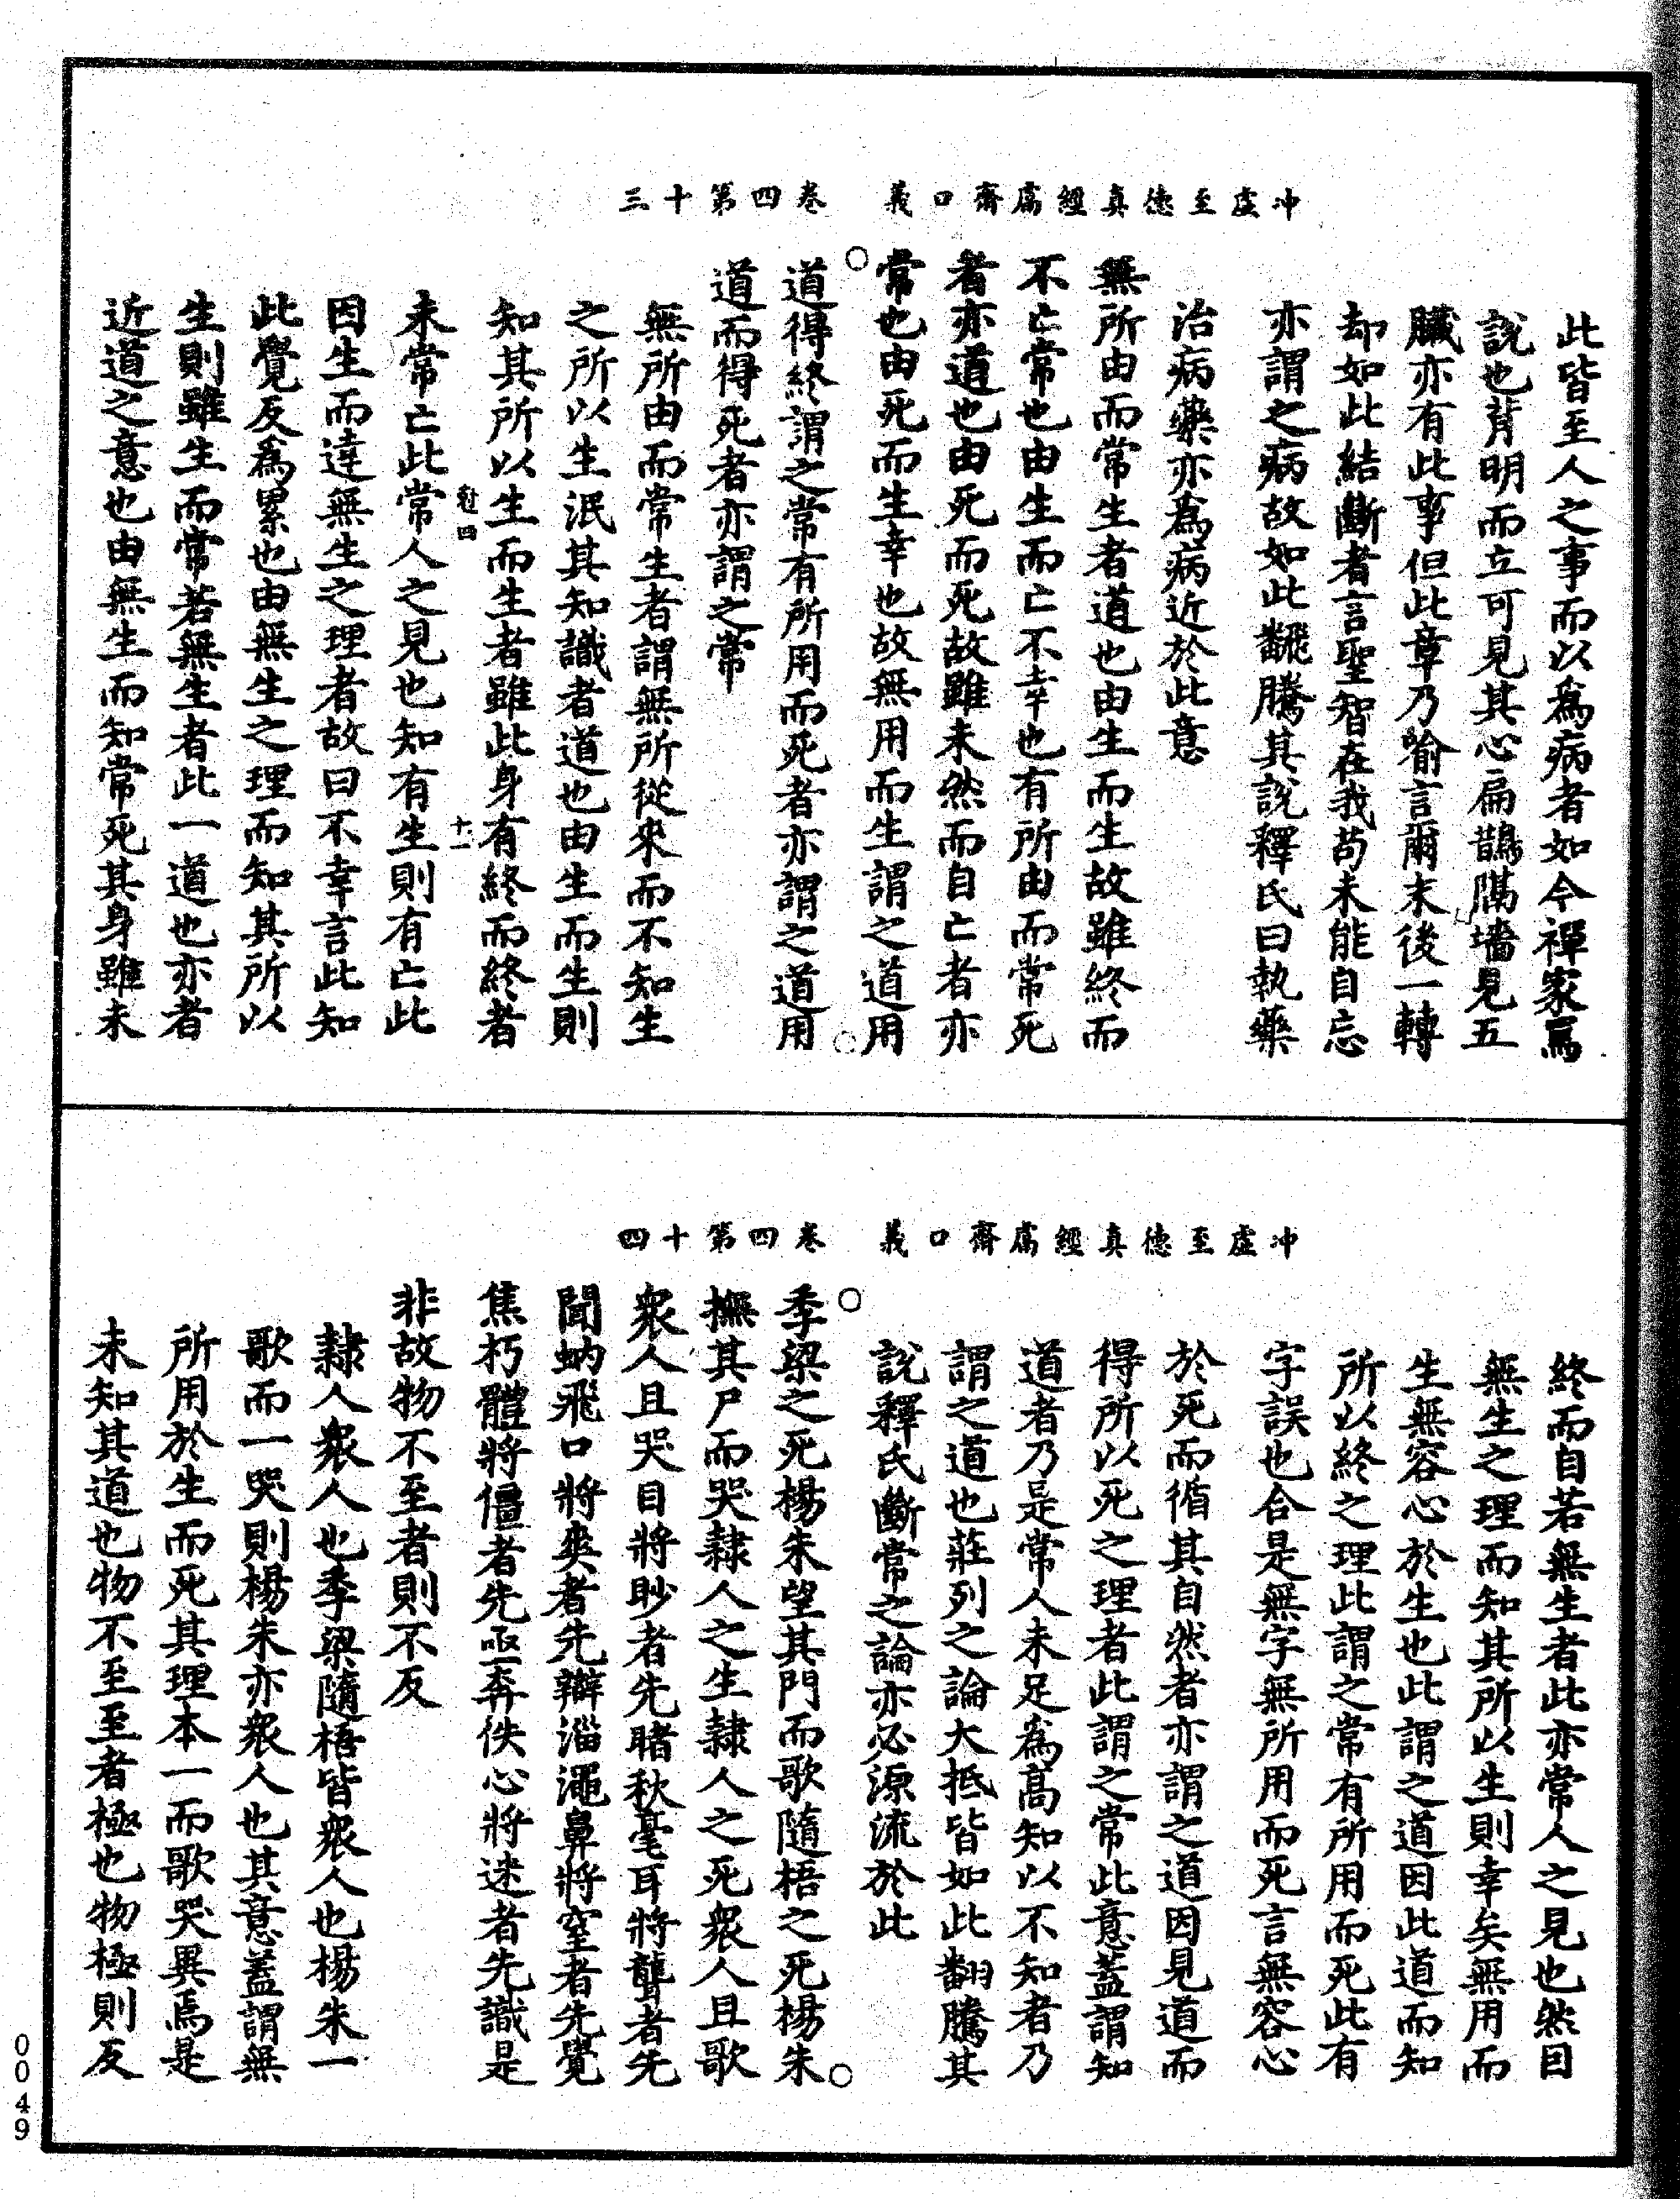 冲虛至德真經鬳齋口義　卷四第十三
此皆至人之事而以為病者如今禪家罵
說也背明而立可見其心扁鵲隔墻見五
臟亦有此事但此章乃喻言爾末後一轉
却如此結斷者言聖智在我苟未能自忘
亦謂之病故如此翻騰其說釋氏曰執藥
治病藥亦為病近於此意
無所由而常生者道也由生而生故雖終而
不亡常也由生而亡不幸也有所由而常死
者亦道也由死而死故雖未然而自亡者亦
常也由死而生幸也故無用而生謂之道用
○道得終謂之常有所用而死者亦謂之道用○
道而得死者亦謂之常
無所由而常生者謂無所從來而不知生
之所以生泯其知識者道也由生而生則
知其所以生而生者雖此身有終而終者
四　十一
未常亡此常人之見也知有生則有亡此
因生而達無生之理者故曰不幸言此知
此覺反為累也由無生之理而知其所以
生則雖生而常若無生者此一道也亦者
近道之意也由無生而知常死其身雖未
冲虛至德真經鬳齋口義　卷四第十四
終而自若無生者此亦常人之見也然因
無生之理而知其所以生則幸矣無用而
生無容心於生也此謂之道因此道而知
所以終之理此謂之常有所用而死此有
字誤也合是無字無所用而死言無容心
於死而循其自然者亦謂之道因見道而
得所以死之理者此謂之常此意蓋謂知
道者乃是常人未足為高知以不知者乃
謂之道也莊列之論大抵皆如此翻騰其
說釋氏斷常之論亦必源流於此
○季梁之死楊朱望其門而歌隨梧之死楊朱○
撫其尸而哭隸人之生隸人之死衆人且歌
衆人且哭目將眇者先睹秋毫耳將聾者先
聞蚋飛口將爽者先辯淄澠鼻將窒者先覺
焦朽體將僵者先亟奔佚心將迷者先識是
非故物不至者則不反
隸人衆人也季梁隨梧皆衆人也楊朱一
歌而一哭則楊朱亦衆人也其意蓋謂無
所用於生而死其理本一而歌哭異焉是
未知其道也物不至至者極也物極則反
0049